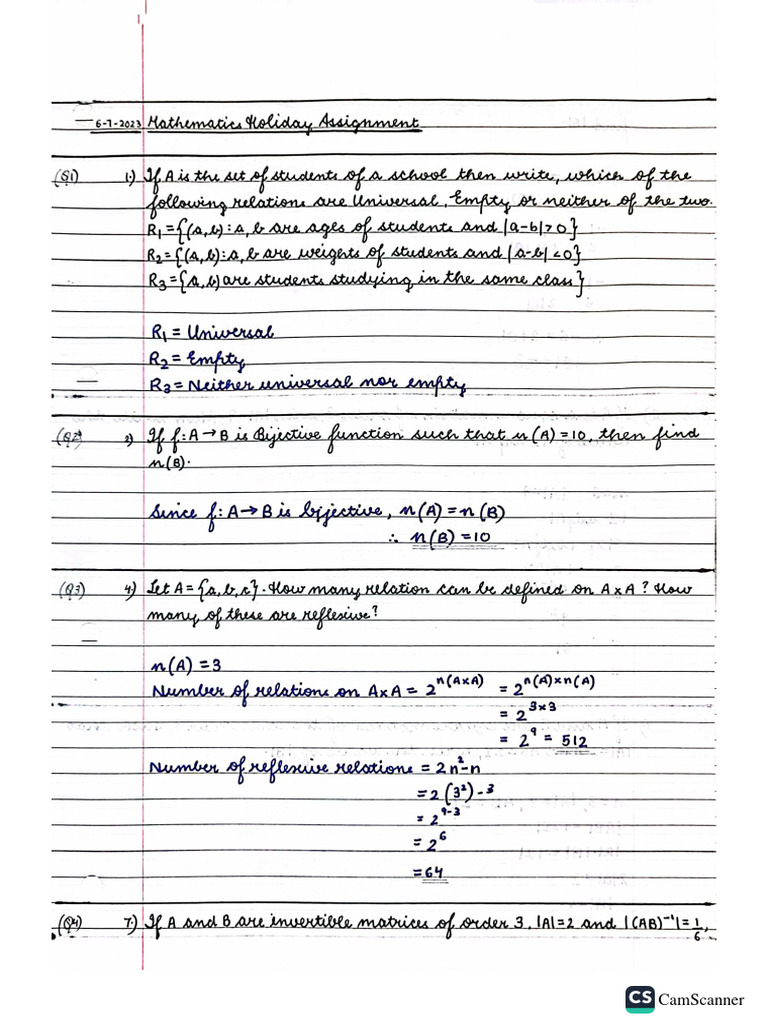 6-7-2023 Mathematics Holiday Assignment
(Q1) 1.) If A is the set of students of a school then write, which of the
following relations are Universal, Empty or neither of the two.
R₁={(a,b):a,b are ages of students and |a-b|>0}
R₂={(a,b):a,b are weights of students and |a-b|<0}
R₃={a,b) are students studying in the same class}
R₁ = Universal
R₂ = Empty
R₃ = Neither universal nor empty
(Q2) 2) If f:A→B is Bijective function such that n(A)=10, then find
n(B).
Since f:A→B is bijective, n(A)=n(B)
∴ n(B)=10
(Q3) 4) Let A={a,b,c}. How many relation can be defined on A×A? How
many of these are reflexive?
n(A)=3
Number of relations on A×A = 2^n(A×A) = 2^n(A)×n(A)
= 2^3×3
= 2^9 = 512
Number of reflexive relations = 2n²-n
= 2(3²)-3
= 2^9-3
= 2^6
= 64
(Q4) 7.) If A and B are invertible matrices of order 3, |A|=2 and |(AB)⁻¹|=1/6,
CS CamScanner